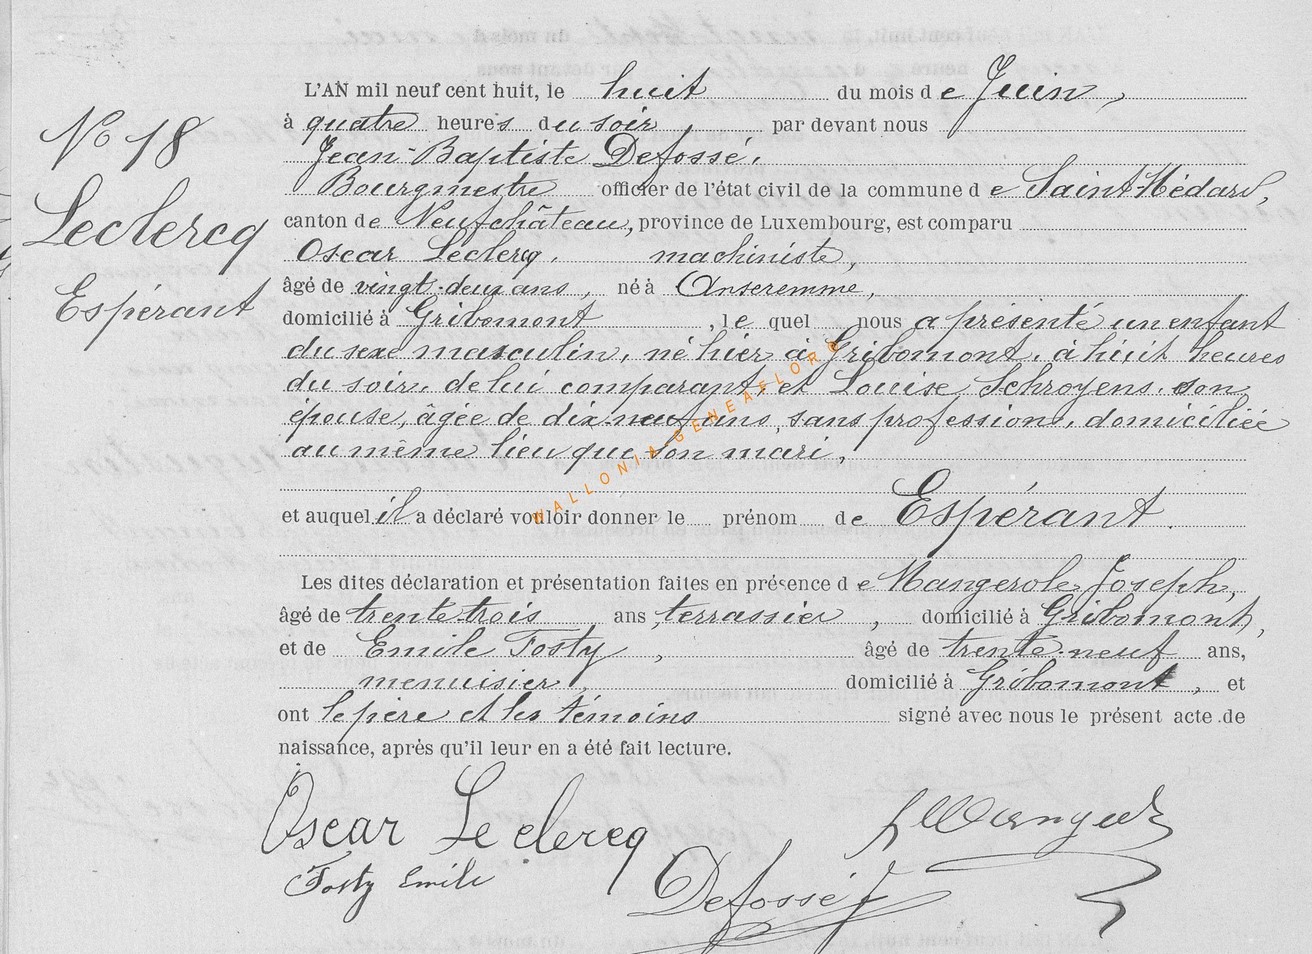 L'AN mil neuf cent huit, le huit du mois de Juin,
à quatre heures du soir par devant nous
Jean-Baptiste Defossé,
Bourgmestre officier de l'état civil de la commune de Saint Médard,
canton de Neufchâteau, province de Luxembourg, est comparu
Oscar Leclercq, machiniste,
âgé de vingt-deux ans, né à Anseremme,
domicilié à Gribomont, le quel nous a présenté un enfant
du sexe masculin, né hier à Gribomont, à huit heures
du soir, de lui comparant, et Louise Schroyens, son
épouse, âgée de dix-neuf ans, sans profession, domiciliée
au même lieu que son mari,
et auquel il a déclaré vouloir donner le prénom de Espérant.
Les dites déclaration et présentation faites en présence de Mangerole, Joseph,
âgé de trente-trois ans, terrassier, domicilié à Gribomont,
et de Emile Fosty, âgé de trente-neuf ans,
menuisier, domicilié à Gribomont, et
ont le père et les témoins signé avec nous le présent acte de
naissance, après qu'il leur en a été fait lecture.
No 18
Leclercq
Espérant
Oscar Leclercq
Fosty Emile
Defossé J
WALLONIA-GENEAFLORE